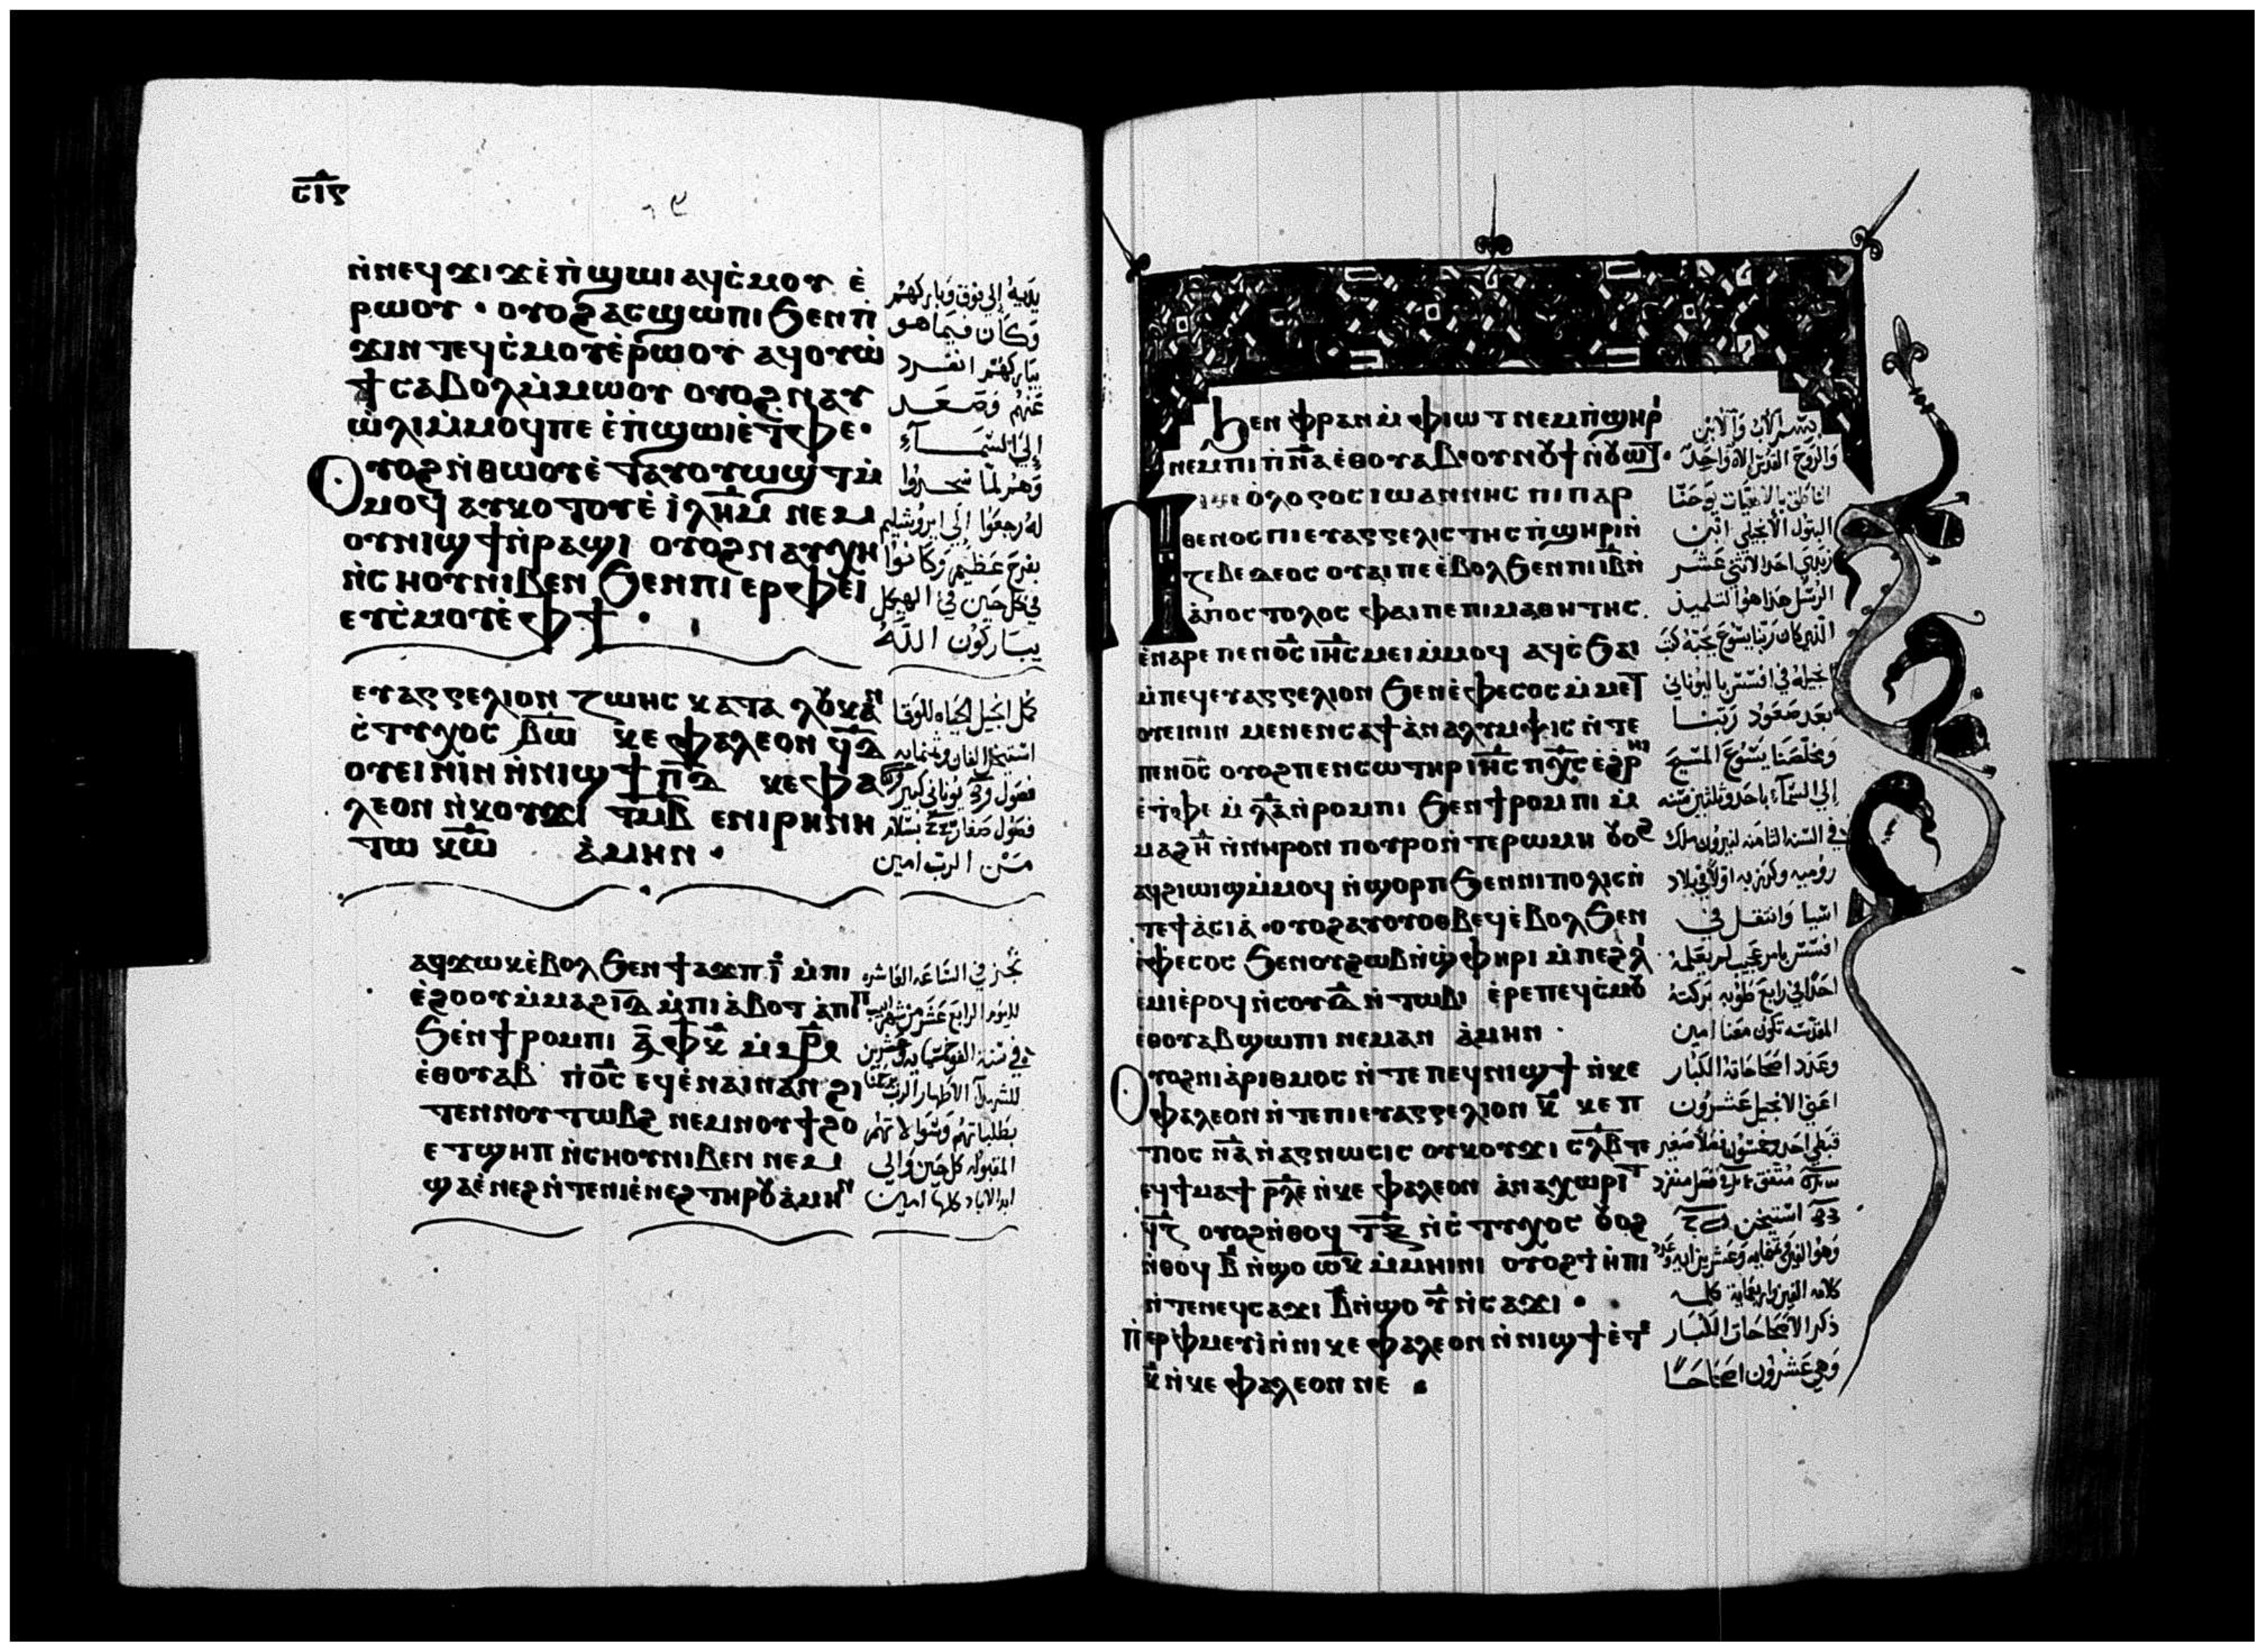 ⲥⲓ̅ⲋ
ⲛ̀ⲛⲉϥϫⲓϫ ⲉ̀ⲡ̀ϣⲱⲓ ⲁϥⲥ̀ⲙⲟⲩ ⲉ̀
ⲣⲱⲟⲩ · ⲟⲩⲟϩ ⲁⲥϣⲱⲡⲓ ϧⲉⲛⲡ̀
ϫⲓⲛⲧⲉϥⲥ̀ⲙⲟⲩ ⲉ̀ⲣⲱⲟⲩ ⲁϥⲟⲩⲱ̀
ϯ ⲥⲁⲃⲟⲗ ⲙ̀ⲙⲱⲟⲩ ⲟⲩⲟϩ ⲛⲁⲩ
ⲱ̀ⲗⲓ ⲙ̀ⲙⲟϥⲡⲉ ⲉ̀ⲡ̀ϣⲱⲓ ⲉ̀ⲧ̀ⲫⲉ ·
Ⲟⲩⲟϩ ⲛ̀ⲑⲱⲟⲩ ⲉ̀ⲧⲁⲩⲟⲩⲱϣⲧ ⲙ̀
ⲙⲟϥ ⲁⲩⲕⲟⲧⲟⲩ ⲉ̀ ⲓ̀ⲗ̅ⲏ̅ⲙ̅ ⲛⲉⲙ
ⲟⲩⲛⲓϣϯ ⲛ̀ⲣⲁϣⲓ ⲟⲩⲟϩ ⲛⲁⲩⲭⲏ
ⲛ̀ⲥⲏⲟⲩ ⲛⲓⲃⲉⲛ ϧⲉⲛⲡⲓⲉⲣⲫⲉⲓ
ⲉⲩⲥ̀ⲙⲟⲩ ⲉ̀ⲫϯ ·
يديه إلى فوق وباركهم
وكان فيما هو
يباركهم انفرد
عنهم وصعد
إلى السمآء
وهم لما سجدوا
له رجعوا إلى ايروشليم
بفرح عظيم وكانوا
في كل حين في الهيكل
يباركون الله
ⲉⲩⲁⲅⲅⲉⲗⲓⲟⲛ ⲍⲱⲏⲥ ⲕⲁⲧⲁ ⲗⲟⲩⲕⲁⲛ
ⲥ̀ⲧⲩⲭⲟⲥ ⲃ̅ⲱ̅ ⲕⲉⲫⲁⲗⲉⲟⲛ ϥ̅ⲇ̅
ⲟⲩⲉⲓⲛⲓⲛ ⲛ̀ⲛⲓϣϯ ⲡ̅ⲇ̅ ⲕⲉⲫⲁ
ⲗⲉⲟⲛ ⲛ̀ⲕⲟⲩϫⲓ ⲧ̅ⲙ̅ⲃ̅ ⲉⲛⲓⲣⲏⲛⲏ
ⲧⲱ ⲕ̅ⲱ̅ ⲁ̀ⲙⲏⲛ ·
كمل انجيل الحياه للوقا
استيخن الفان وثمانمايه
من الرب امين
ⲁϥϫⲱⲕ ⲉ̀ⲃⲟⲗ ϧⲉⲛ ϯⲁϫⲡ ⲓ̅ ⲙ̀ⲡⲓ
ⲉ̀ϩⲟⲟⲩ ⲙ̀ⲙⲁϩ ⲓ̅ⲇ̅ ⲙ̀ⲡⲓⲁ̀ⲃⲟⲧ ⲁ̀ⲡⲓⲡ
ϧⲉⲛ ϯⲣⲟⲙⲡⲓ ⲁ̅ⲫ̅ⲕ̅
ⲉ̀ⲑⲟⲩⲁⲃ ⲡ̀ⲟ̅ⲥ̅ ⲉϥⲉ̀ⲛⲁⲓ ⲛⲁⲛ ϩⲓ
ⲧⲉⲛ ⲛⲟⲩⲧⲱⲃϩ ⲛⲉⲙ ⲛⲟⲩϯϩⲟ
ⲉⲧϣⲏⲡ ⲛ̀ⲥⲏⲟⲩ ⲛⲓⲃⲉⲛ ⲛⲉⲙ
ϣⲁ ⲉ̀ⲛⲉϩ ⲛ̀ⲧⲉ ⲛⲓⲉ̀ⲛⲉϩ ⲧⲏⲣⲟⲩ ⲁ̀ⲙⲏⲛ
نجز في الساعه العاشره
لليوم الرابع عشر من شهر ابيب
المقبوله كل حين والى
ابد الاباد كلها امين
ϧⲉⲛ ⲫ̀ⲣⲁⲛ ⲙ̀ⲫⲓⲱⲧ ⲛⲉⲙ ⲡ̀ϣⲏⲣⲓ
ⲛⲉⲙ ⲡⲓⲡ̅ⲛ̅ⲁ̅ ⲉ̀ⲑⲟⲩⲁⲃ · ⲟⲩⲛⲟⲩϯ ⲛ̀ⲟⲩⲱⲧ ·
Ⲡⲓⲑⲉⲟ̀ⲗⲟⲅⲟⲥ ⲓⲱⲁⲛⲛⲏⲥ ⲡⲓⲡⲁⲣ
ⲑⲉⲛⲟⲥ ⲡⲓⲉⲩⲁⲅⲅⲉⲗⲓⲥⲧⲏⲥ ⲡ̀ϣⲏⲣⲓ ⲛ̀
ⲍⲉⲃⲉⲇⲉⲟⲥ ⲟⲩⲁⲓ ⲡⲉ ⲉ̀ⲃⲟⲗ ϧⲉⲛ ⲡⲓ ⲓ̅ⲃ̅ ⲛ̀
ⲁ̀ⲡⲟⲥⲧⲟⲗⲟⲥ ⲫⲁⲓ ⲡⲉ ⲡⲓⲙⲁⲑⲏⲧⲏⲥ
ⲉ̀ⲛⲁⲣⲉ ⲡⲉⲛⲟ̅ⲥ̅ ⲓ̅ⲏ̅ⲥ̅ ⲙⲉⲓ ⲙ̀ⲙⲟϥ ⲁϥⲥ̀ϧⲁⲓ
ⲙ̀ⲡⲉϥⲉⲩⲁⲅⲅⲉⲗⲓⲟⲛ ϧⲉⲛ ⲉ̀ⲫⲉⲥⲟⲥ ⲙ̀ⲙⲉⲧ
ⲟⲩⲉⲓⲛⲓⲛ ⲙⲉⲛⲉⲛⲥⲁ ϯⲁ̀ⲛⲁⲗⲩⲙⲯⲓⲥ ⲛ̀ⲧⲉ
ⲡⲉⲛⲟ̅ⲥ̅ ⲟⲩⲟϩ ⲡⲉⲛⲥⲱⲧⲏⲣ ⲓ̅ⲏ̅ⲥ̅ ⲡ̅ⲭ̅ⲥ̅ ⲉ̀ϩⲣⲏⲓ
ⲉ̀ⲧ̀ⲫⲉ ⲙ̀ ⲗ̅ⲁ̅ ⲛ̀ⲣⲟⲙⲡⲓ ϧⲉⲛ ϯⲣⲟⲙⲡⲓ ⲙ̀
ⲙⲁϩ ⲏ̅ ⲛ̀ⲛⲏⲣⲟⲛ ⲡⲟⲩⲣⲟ ⲛ̀ⲧⲉ ⲣⲱⲙⲏ ⲟⲩⲟϩ
ⲁϥϩⲓⲱⲓϣ ⲙ̀ⲙⲟϥ ⲛ̀ϣⲟⲣⲡ ϧⲉⲛ ⲛⲓⲡⲟⲗⲓⲥ ⲛ̀
ⲧⲉ ϯⲁ̀ⲥⲓⲁ̀ · ⲟⲩⲟϩ ⲁⲩⲟⲩⲟⲑⲃⲉϥ ⲉ̀ⲃⲟⲗ ϧⲉⲛ
ⲉ̀ⲫⲉⲥⲟⲥ ϧⲉⲛ ⲟⲩϩⲱⲃ ⲛ̀ϣ̀ⲫⲏⲣⲓ ⲙ̀ⲡⲉϩⲗⲓ
ⲉ̀ⲙⲓ ⲉ̀ⲣⲟϥ ⲛ̀ⲥⲟⲩ ⲇ̅ ⲛ̀ⲧⲱⲃⲓ ⲉ̀ⲣⲉ ⲡⲉϥⲥ̀ⲙⲟⲩ
ⲉ̀ⲑⲟⲩⲁⲃ ϣⲱⲡⲓ ⲛⲉⲙⲁⲛ ⲁ̀ⲙⲏⲛ ·
Ⲟⲩⲟϩ ⲛⲓⲁ̀ⲣⲓⲑⲙⲟⲥ ⲛ̀ⲧⲉ ⲡⲉϥⲛⲓϣϯ ⲛ̀ⲕⲉ
ⲫⲁⲗⲉⲟⲛ ⲛ̀ⲧⲉ ⲡⲓⲉⲩⲁⲅⲅⲉⲗⲓⲟⲛ ⲕ̅ ⲕⲉⲡ
ⲧⲟⲥ ⲛ̅ⲁ̅ ⲛ̀ⲁⲅⲛⲱⲥⲓⲥ ⲟⲩⲕⲟⲩϫⲓ ⲥ̅ⲗ̅ⲃ̅ ⲧⲉ
ⲉϥϯⲙⲁϯ ⲣ̅ⲗ̅ⲉ̅ ⲛ̀ⲕⲉⲫⲁⲗⲉⲟⲛ ⲁ̀ⲛⲁⲭⲱⲣⲓⲧ
ϥ̅ⲍ̅ ⲟⲩⲟϩ ⲛ̀ⲑⲟϥ ⲛ̀ⲥ̀ⲧⲩⲭⲟⲥ ⲟⲩⲟϩ
ⲛ̀ⲑⲟϥ ⲃ̅ ⲛ̀ϣⲟ ⲱ̅ⲕ̅ ⲙ̀ⲙⲏⲓⲛⲓ ⲟⲩⲟϩ ϯⲏ̀ⲡⲓ
ⲛ̀ⲧⲉ ⲛⲉϥⲥⲁϫⲓ ⲃ̅ ⲛ̀ϣⲟ ⲩ̅ ⲛ̀ⲥⲁϫⲓ ·
ⲡ̀ⲉⲣⲫ̀ⲙⲉⲩⲓ̀ ⲛ̀ⲛⲓⲕⲉⲫⲁⲗⲉⲟⲛ ⲛ̀ⲛⲓϣϯ ⲉ̀ⲧⲉ
ⲕ̅ ⲛ̀ⲕⲉⲫⲁⲗⲉⲟⲛ ⲛⲉ ·
بسم الآب والابن
والروح القدس الاله واحد
الناطق بالالاهيات يوحنا
البتول الانجيلي ابن
زبدي احد الاثني عشر
الرسل هذا هو التلميذ
الذي كان ربنا يسوع يحبه كتب
انجيله في افسس باليوناني
بعد صعود ربنا
ومخلصنا يسوع المسيح
إلى السمآء باحد وثلثين سنه
في السنه الثامنه لنيرون ملك
روميه وكرز به اولاً في بلاد
اسيا وانتقل في
افسس بامر عجيب لم يعلمه
احد في رابع طوبه بركته
المقدسه تكون معنا امين
وعدد اصحاحاته الكبار
اعني الانجيل عشرون
كلامه الفين واربعماية كلمه
ذكر الاصحاحات الكبار
وهي عشرون اصحاحًا